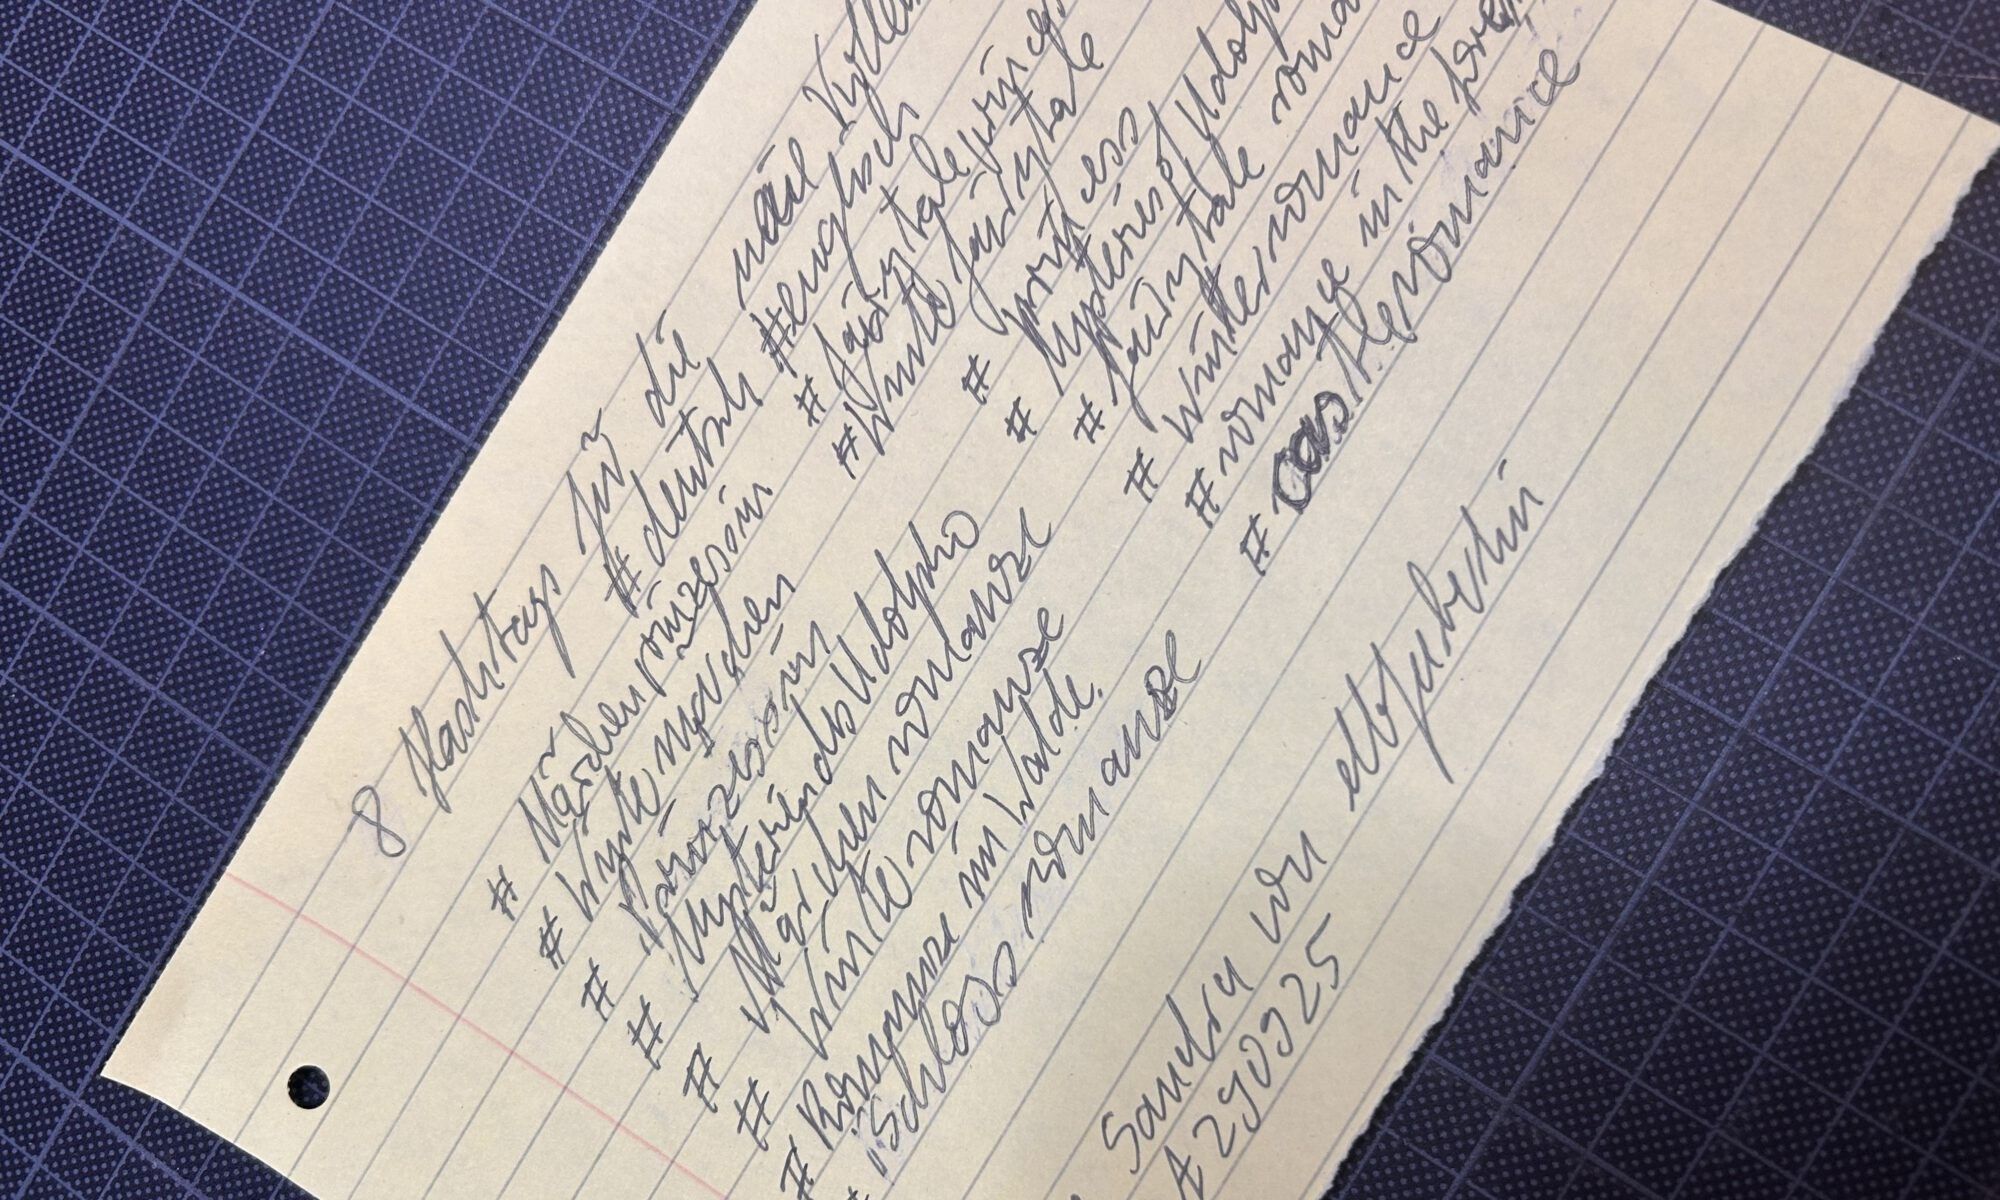 8 Hashtags für die
#deutsch #englisch
# Märchenprinzessin # fairytale princess
# Wintermärchen # Winterfairytale
# Prinzessin # princess
# Mysterien des Udolpho # Mysteries of Udolpho
# Märchenromanze # fairytale romance
# Winterromanze # winterromance
# Romanze im Walde # romance in the forest
# Schlossromanze # castleromance
Sandra von
A290925